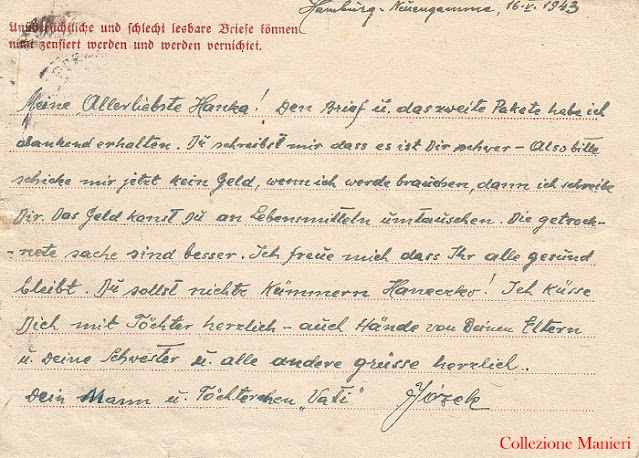 Hamburg - Neuengamme, 16-V. 1943
Unübersichtliche und schlecht lesbare Briefe können
nicht zensiert werden und werden vernichtet.
Meine Allerliebste Hanka! Den Brief u. das zweite Pakete habe ich
dankend erhalten. Du schreibst mir dass es ist Dir schwer - Also bitte
schicke mir jetzt kein Geld, wenn ich werde brauchen, dann ich schreibe
Dir. Das Geld kanst Du an Lebensmitteln umtauschen. Die getrock-
-nete sache sind besser. Ich freue mich dass Ihr alle gesund
bleibt. Du sollst nichts Kümmern Haneczko! Ich küsse
Dich mit Töchter herzlich - auch Hände von Deinen Eltern
u. Deine Schwester u. alle andere grüsse herzlich.
Dein Mann u. Töchterchen „Vati" Józek
Collezione Manieri